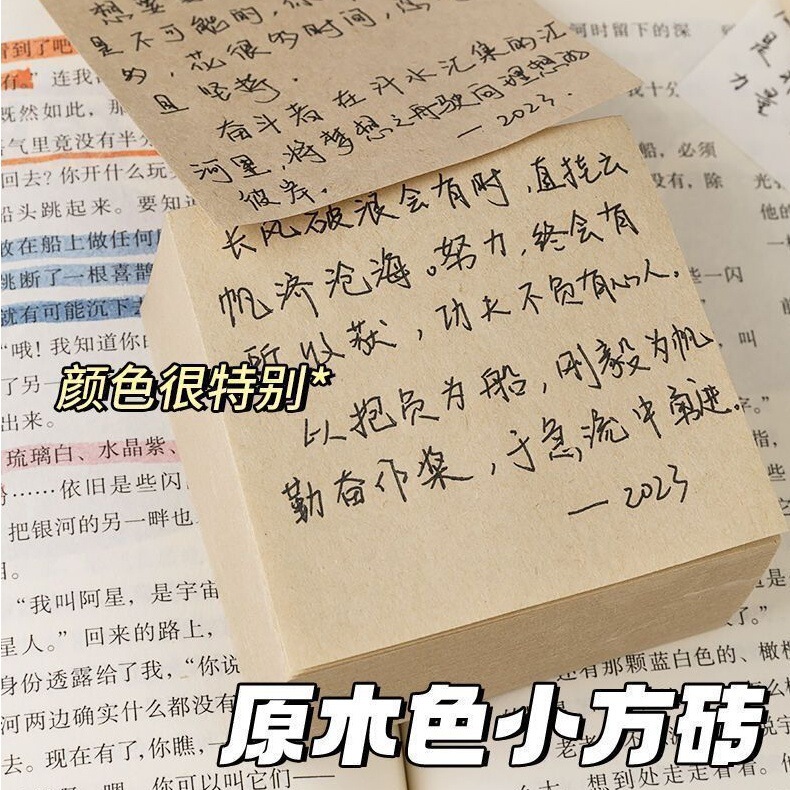 想要
是不可能的，你
的，花很多的时间，
且坚
奋斗者在汗水汇集的江
河里，将梦想之舟驶向理想的
彼岸。
—2023.
长风破浪会有时，直挂云
帆济沧海。努力，终会有
所收获，功夫不负有心人。
以抱负为船，刚毅为帆
勤奋作桨，于急流中进。
—2023
颜色很特别*
原木色小方砖
看到了吧
有。”连我
既然如此，那
气里竟没有半
回去？你开什么玩
船头跳起来。要知
放在船上做任何
跳断了一根喜鹊
就有可能沉下去
“哦！我知道你
了另一
出来。
琉璃白、水晶紫、
……依旧是些闪
把银河的另一畔也
“我叫阿星，是宇宙
星人。”回来的路上，
身份透露给了我，“你说
河两边确实什么都没有
去。现在有了，你瞧，一
嗯，你可以叫它们——
何时留下的深
我十分
船，必须
没有，除
些一闪
叫
字。”
指，
还有那颗蓝白色的、橄榄
老
想到处走走看看。
是
力量
光，
他的